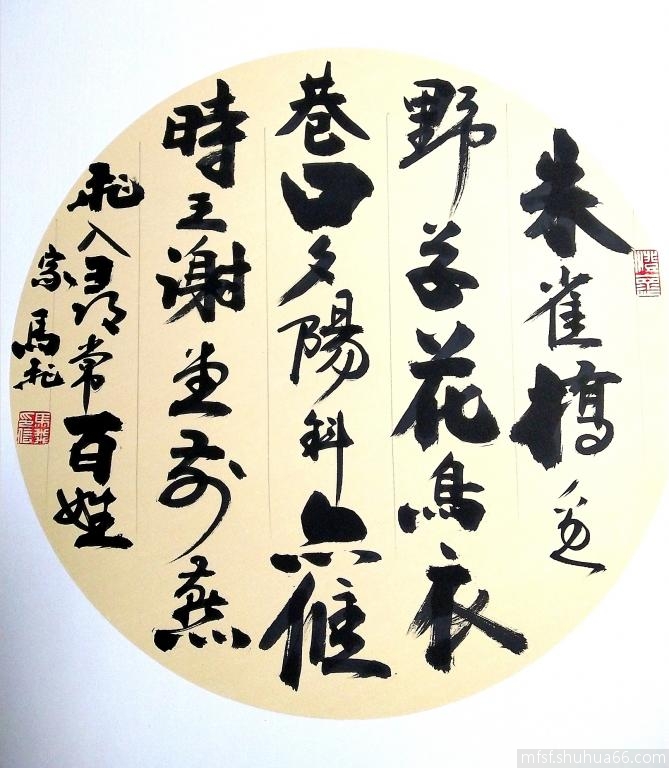 朱雀橋邊
野草花烏衣
巷口夕陽斜舊
時王謝堂前燕
飛入尋常百姓
家 馬
mfsf.shuhua66.com